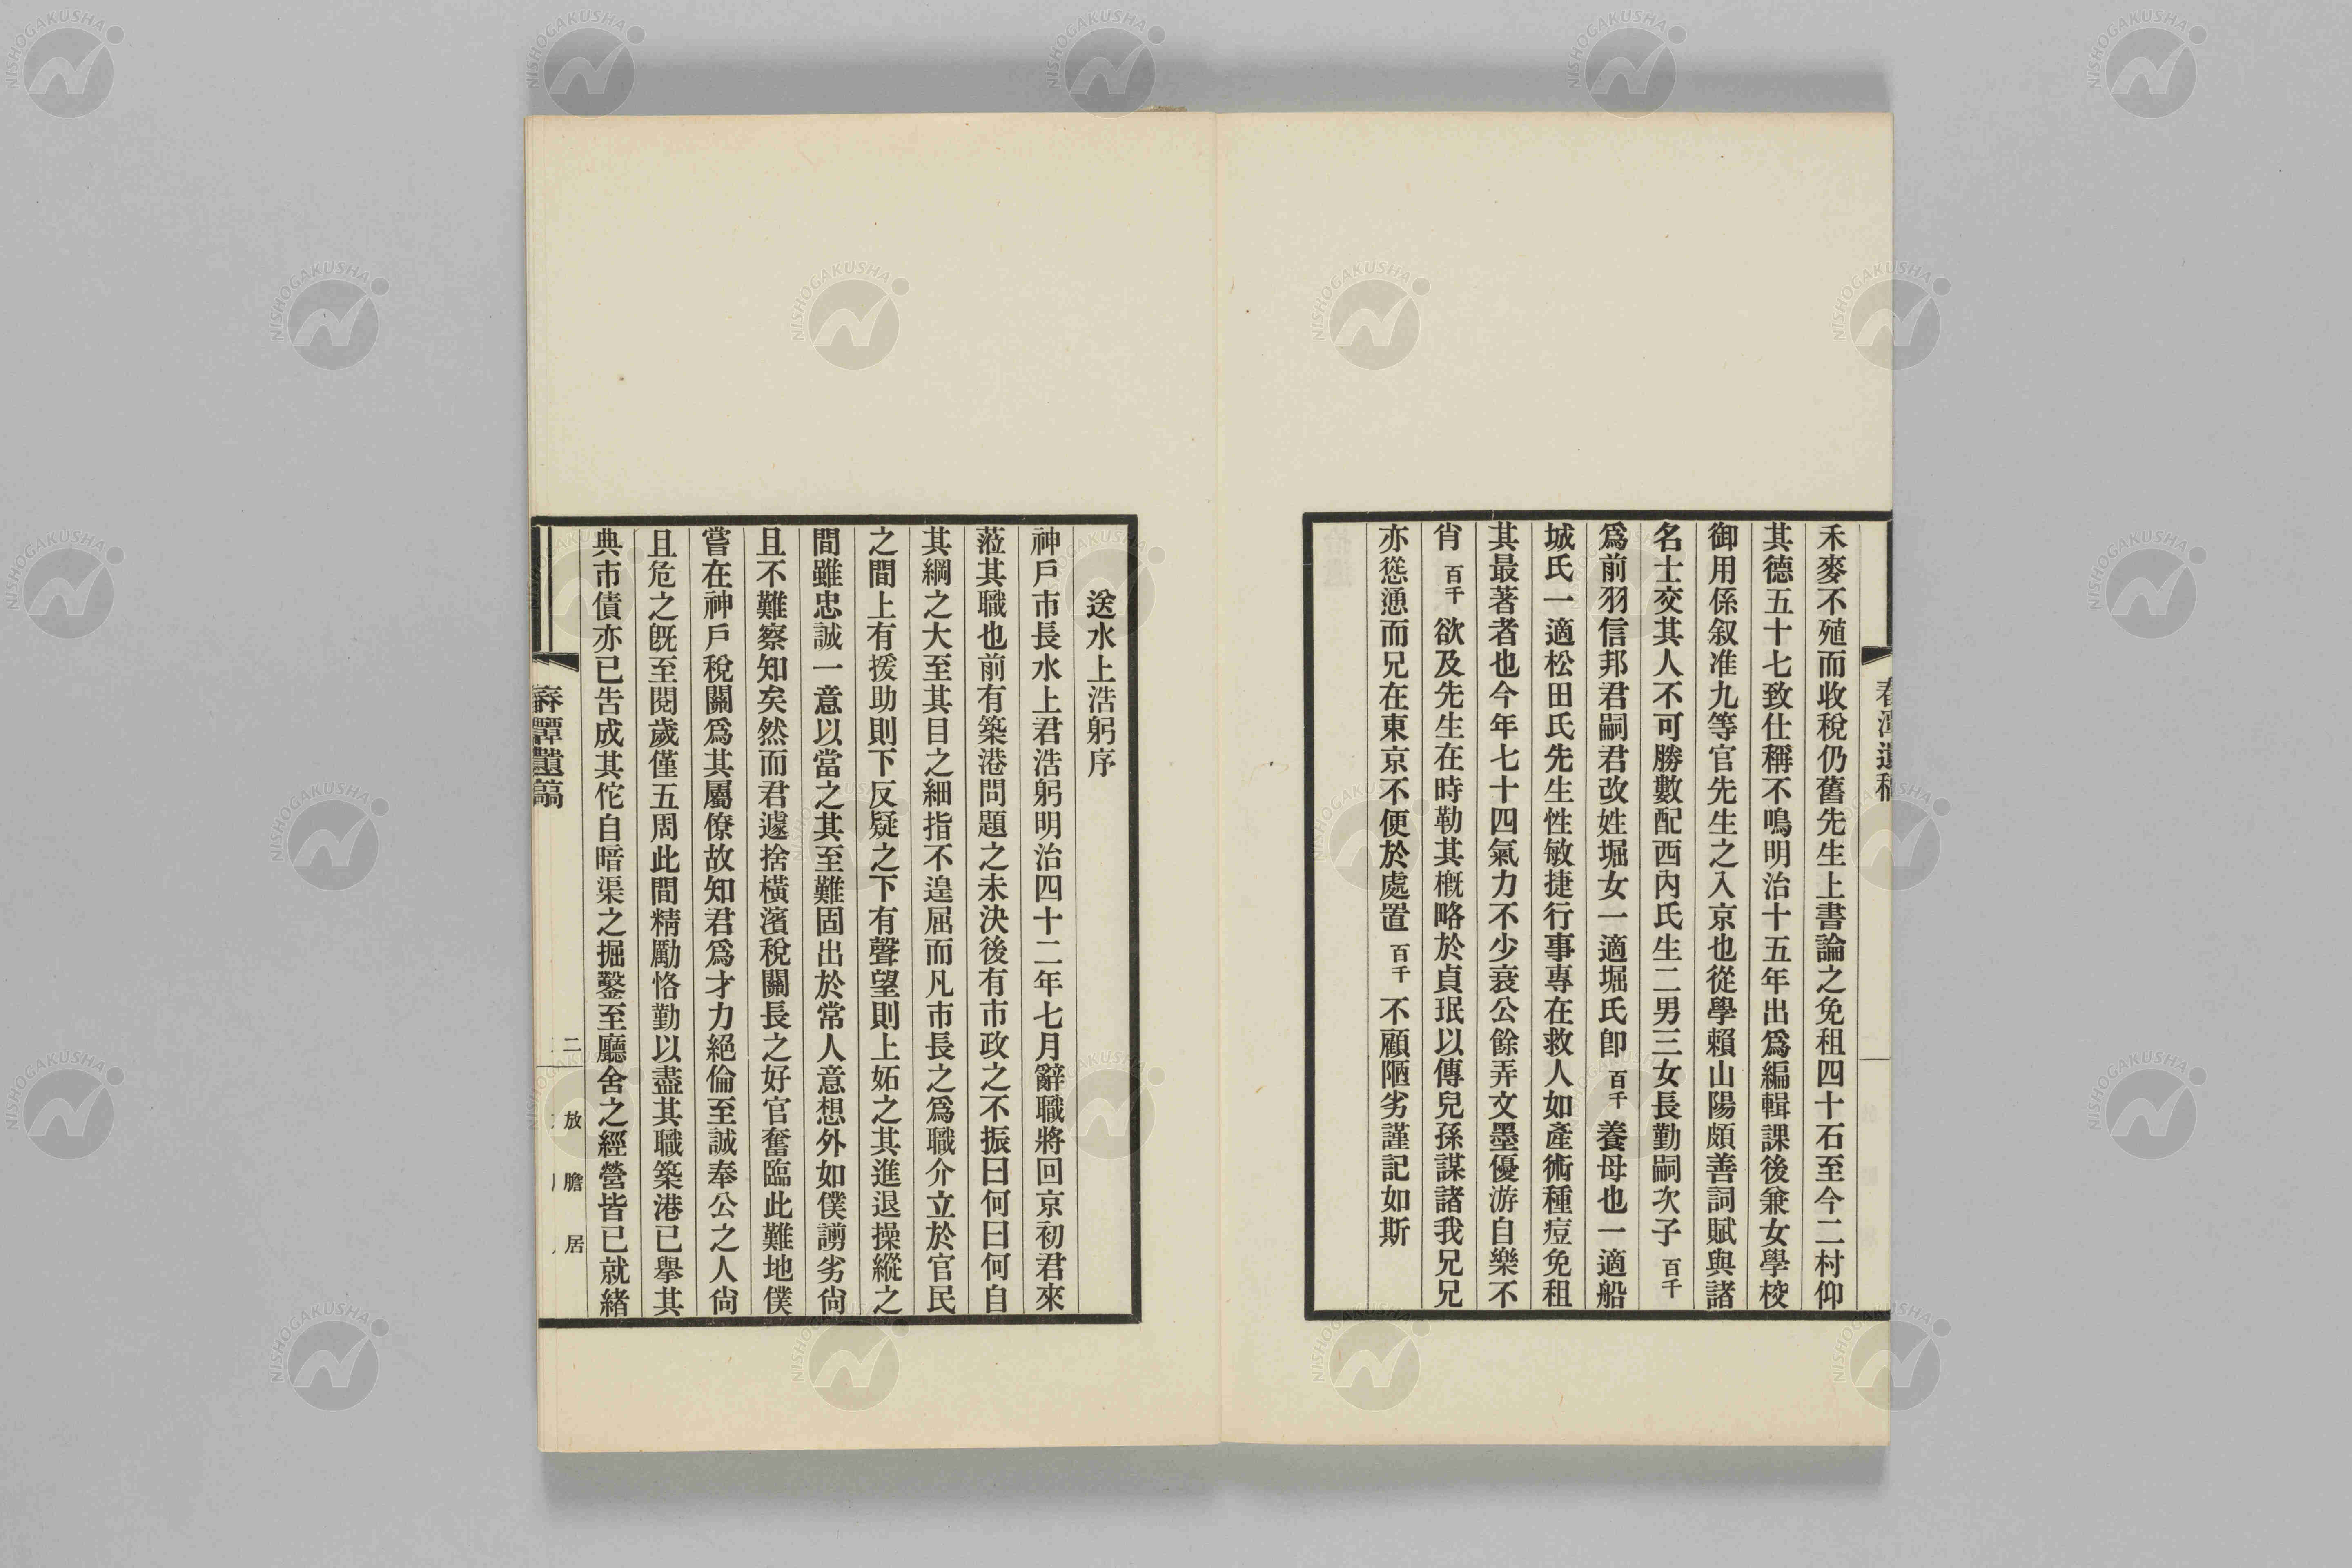 春潭遺稿
禾麥不殖而收稅仍舊先生上書論之免租四十石至今二村仰
其德五十七致仕稱不鳴明治十五年出爲編輯課後兼女學校
御用係叙准九等官先生之入京也從學賴山陽頗善詞賦與諸
名士交其人不可勝數配西內氏生二男三女長勤嗣次子百千
爲前羽信邦君嗣君改姓堀女一適堀氏卽百千養母也一適船
城氏一適松田氏先生性敏捷行事專在救人如產術種痘免租
其最著者也今年七十四氣力不少衰公餘弄文墨優游自樂不
肖百千欲及先生在時勒其槪略於貞珉以傳兒孫謀諸我兄兄
亦慫慂而兄在東京不便於處置百千不顧陋劣謹記如斯
送水上浩躬序
神戶市長水上君浩躬明治四十二年七月辭職將回京初君來
蒞其職也前有築港問題之未決後有市政之不振曰何曰何自
其綱之大至其目之細指不遑屈而凡市長之爲職介立於官民
之間上有援助則下反疑之下有聲望則上妬之其進退操縱之
間雖忠誠一意以當之其至難固出於常人意想外如僕謭劣尙
且不難察知矣然而君遽捨橫濱稅關長之好官奮臨此難地僕
嘗在神戶稅關爲其屬僚故知君爲才力絕倫至誠奉公之人尙
且危之旣至閱歲僅五周此間精勵恪勤以盡其職築港已擧其
典市債亦已告成其佗自暗渠之掘鑿至廳舍之經營皆已就緖
春潭遺稿
二
放膽居
NISHOGAKUSHA